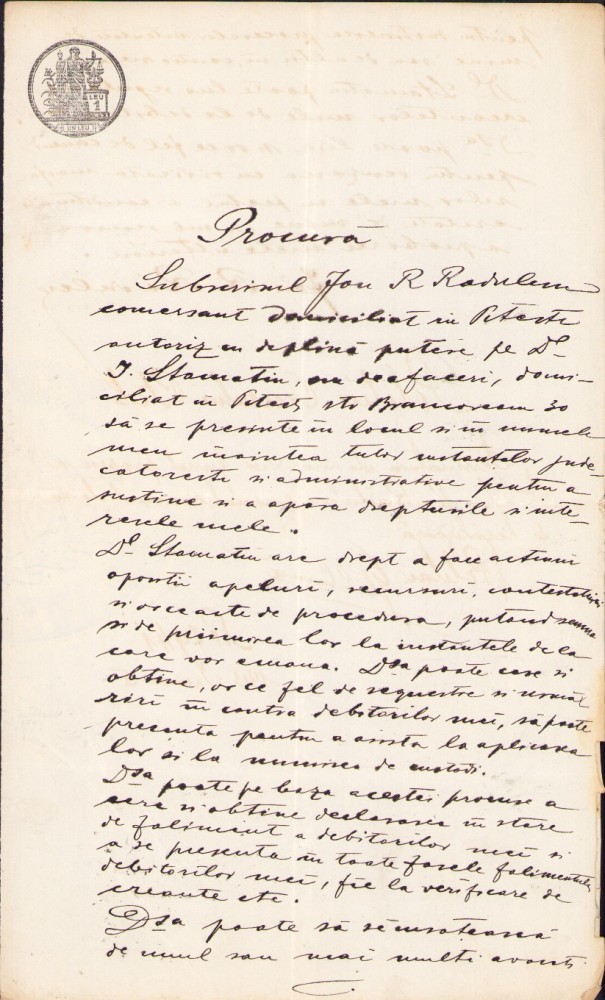 LEU
1
UN LEU
Procură
Subsemnatul Jon R Radulescu
comersant domiciliat in Pitesti
autoriz cu deplină putere pe Dl
I. Stamatin, om de afaceri, domi-
ciliat in Pitesti str Brancoveanu 30
să se presinte in locul si in numele
meu inaintea tutor instantelor jude-
catoresti si administrative pentru a
sustine si a apăra drepturile si inte-
resele mele.
Dl Stamatin are drept a face actiuni
opositii apeluri, recursuri, contestatiuni
si orce acte de procedura, putand semna
si de primirea lor la instantele de la
care vor emana. Dsa poate cere si
obtine, orce fel de sequestre si urmăr
riri in contra debitorilor mei, să poate
presenta pentru a asista la aplicarea
lor si la numirea de custodi.
Dsa poate pe baza acestei procure a
cere si obtine declararea in stare
de faliment a debitorilor mei si
a se presenta in toate fasele falimentului
debitorilor mei, fie la verificare de
creante etc.
Dsa poate să se insotească
de unul sau mai multi avocati